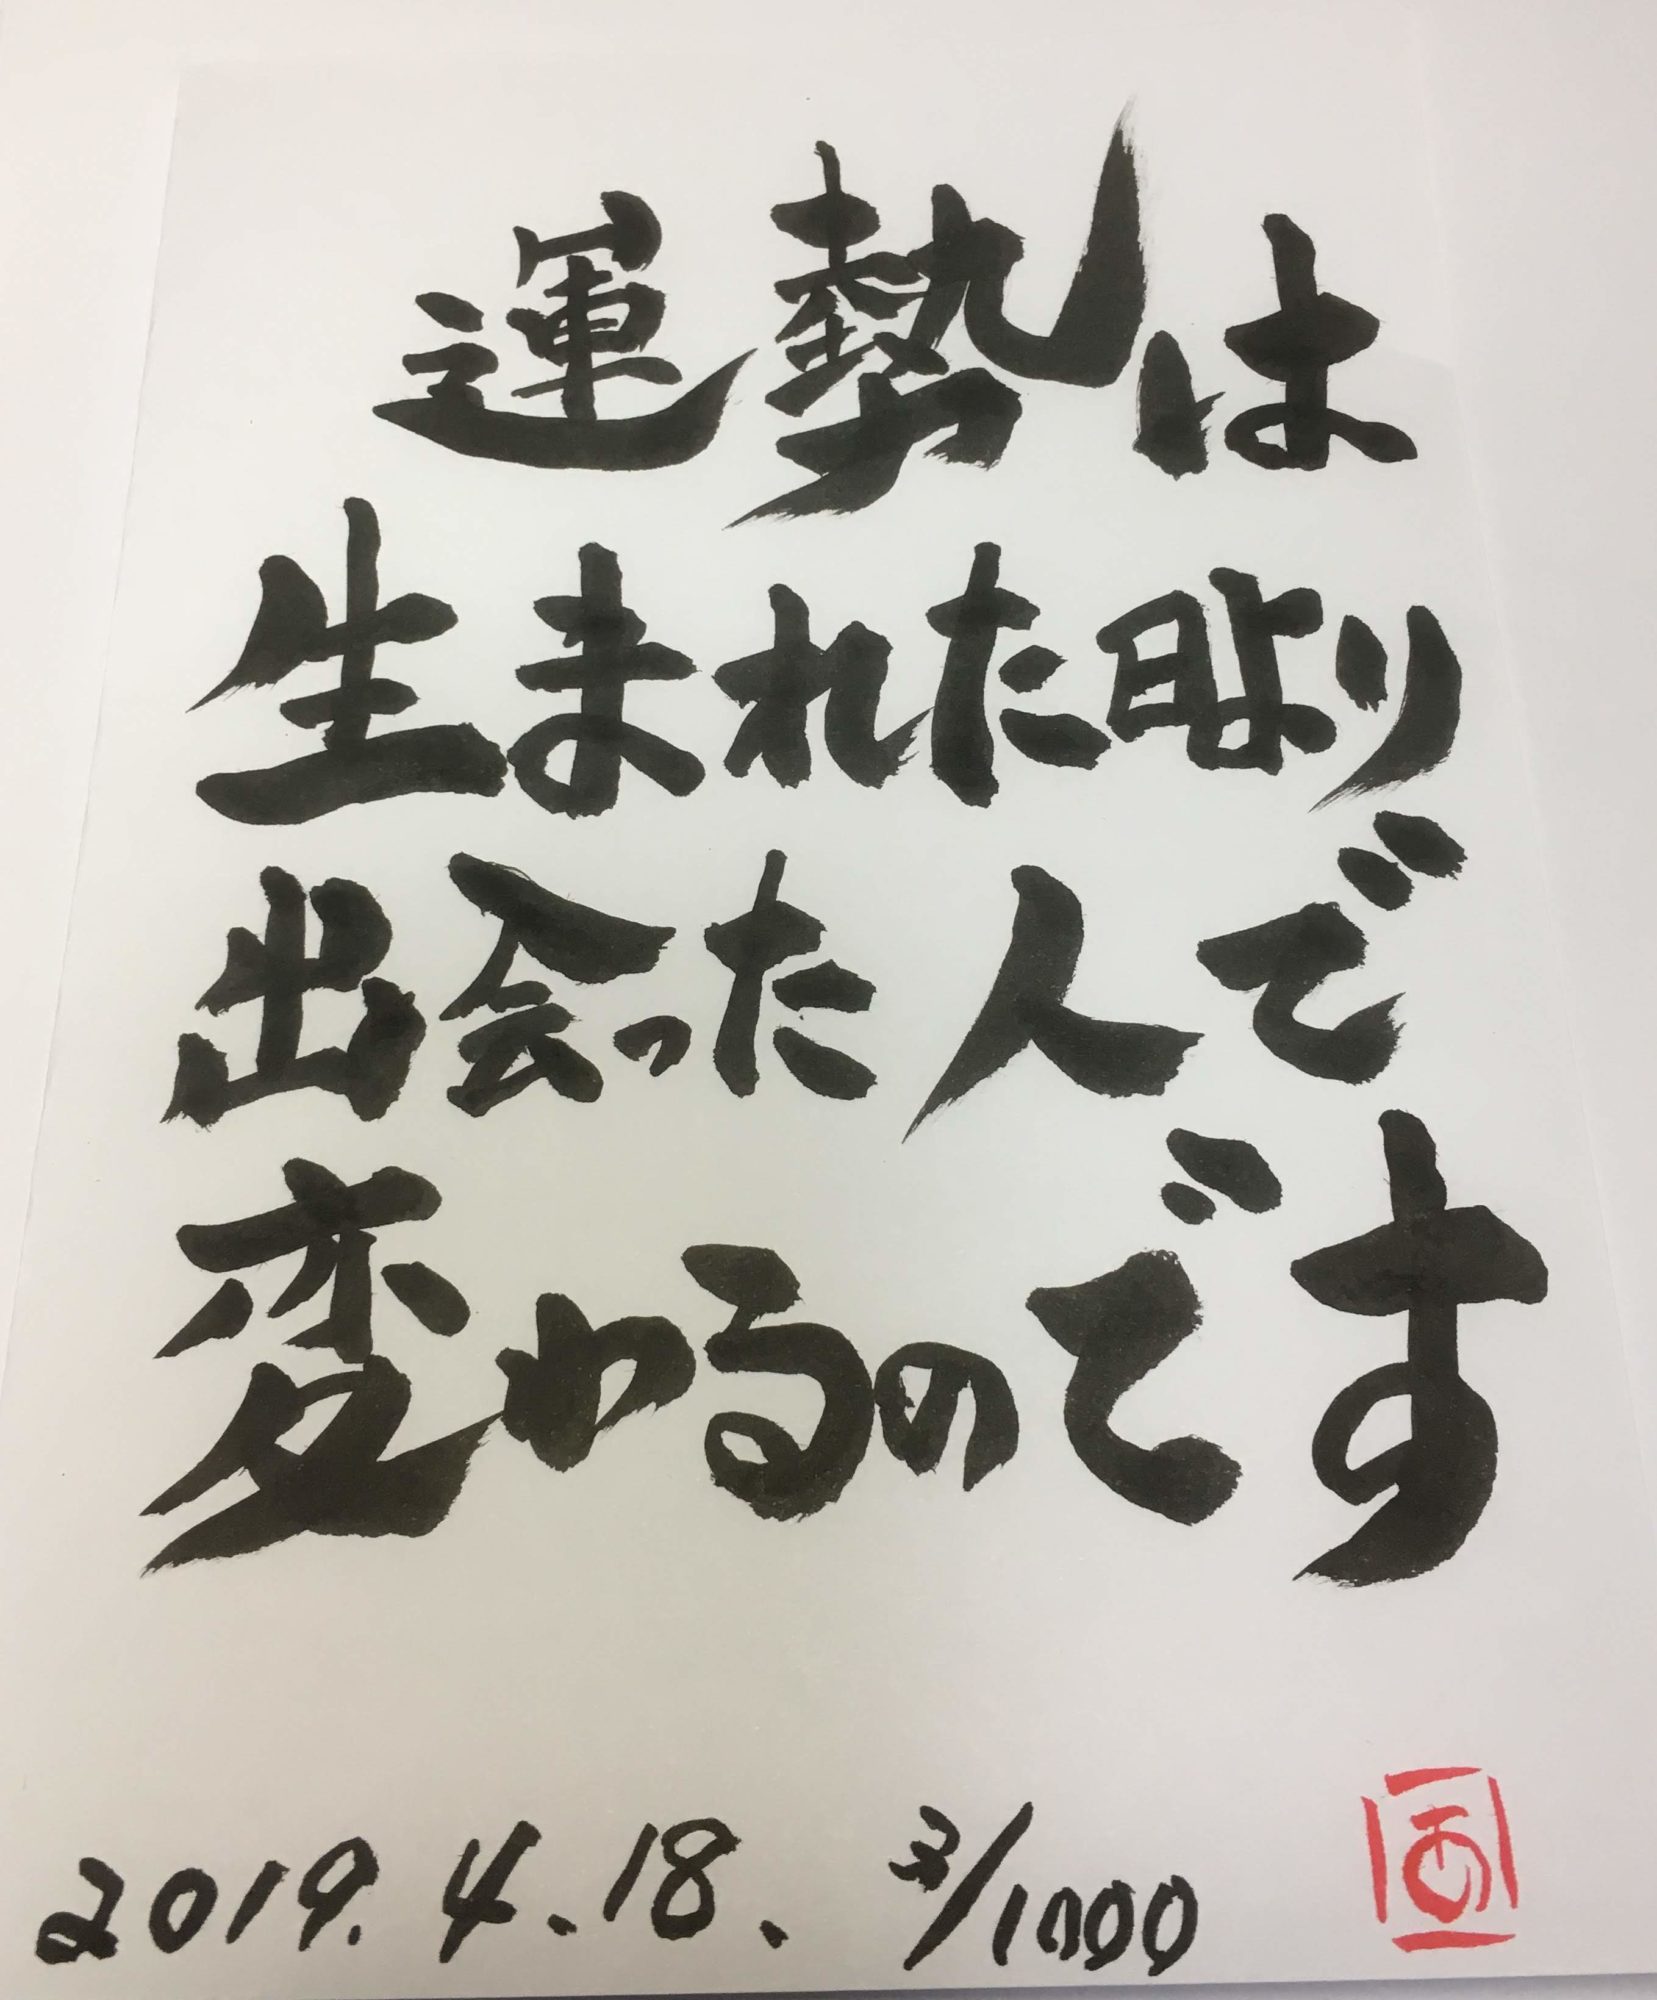 運勢は
生まれた日より
出会った人で
変わるのです
2019.4.18. 3/1000